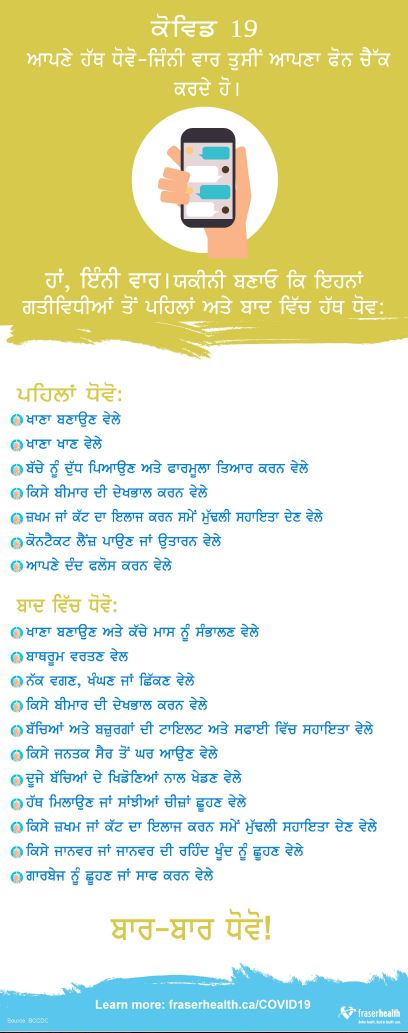 ਕੋਵਿਡ 19
ਆਪਣੇ ਹੱਥ ਧੋਵੋ-ਜਿੰਨੀ ਵਾਰ ਤੁਸੀਂ ਆਪਣਾ ਫੋਨ ਚੈੱਕ
ਕਰਦੇ ਹੋ।
ਹਾਂ, ਇੰਨੀ ਵਾਰ।ਯਕੀਨੀ ਬਣਾਓ ਕਿ ਇਹਨਾਂ
ਗਤੀਵਿਧੀਆਂ ਤੋਂ ਪਹਿਲਾਂ ਅਤੇ ਬਾਦ ਵਿੱਚ ਹੱਥ ਧੋਵ:
ਪਹਿਲਾਂ ਧੋਵੋ:
ਖਾਣਾ ਬਣਾਉਣ ਵੇਲੇ
ਖਾਣਾ ਖਾਣ ਵੇਲੇ
ਬੱਚੇ ਨੂੰ ਦੁੱਧ ਪਿਆਉਣ ਅਤੇ ਫਾਰਮੂਲਾ ਤਿਆਰ ਕਰਨ ਵੇਲੇ
ਕਿਸੇ ਬੀਮਾਰ ਦੀ ਦੇਖਭਾਲ ਕਰਨ ਵੇਲੇ
ਜ਼ਖਮ ਜਾਂ ਕੱਟ ਦਾ ਇਲਾਜ ਕਰਨ ਸਮੇਂ ਮੁੱਢਲੀ ਸਹਾਇਤਾ ਦੇਣ ਵੇਲੇ
ਕੋਨਟੈਕਟ ਲੈਂਜ਼ ਪਾਉਣ ਜਾਂ ਉਤਾਰਨ ਵੇਲੇ
ਆਪਣੇ ਦੰਦ ਫਲੋਸ ਕਰਨ ਵੇਲੇ
ਬਾਦ ਵਿੱਚ ਧੋਵੋ:
ਖਾਣਾ ਬਣਾਉਣ ਅਤੇ ਕੱਚੇ ਮਾਸ ਨੂੰ ਸੰਭਾਲਣ ਵੇਲੇ
ਬਾਥਰੂਮ ਵਰਤਣ ਵੇਲ
ਨੱਕ ਵਗਣ, ਖੰਘਣ ਜਾਂ ਛਿੱਕਣ ਵੇਲੇ
ਕਿਸੇ ਬੀਮਾਰ ਦੀ ਦੇਖਭਾਲ ਕਰਨ ਵੇਲੇ
ਬੱਚਿਆਂ ਅਤੇ ਬਜ਼ੁਰਗਾਂ ਦੀ ਟਾਇਲਟ ਅਤੇ ਸਫਾਈ ਵਿੱਚ ਸਹਾਇਤਾ ਵੇਲੇ
ਕਿਸੇ ਜਨਤਕ ਸੈਰ ਤੋਂ ਘਰ ਆਉਣ ਵੇਲੇ
ਦੂਜੇ ਬੱਚਿਆਂ ਦੇ ਖਿਡੋਣਿਆਂ ਨਾਲ ਖੇਡਣ ਵੇਲੇ
ਹੱਥ ਮਿਲਾਉਣ ਜਾਂ ਸਾਂਝੀਆਂ ਚੀਜ਼ਾਂ ਛੂਹਣ ਵੇਲੇ
ਕਿਸੇ ਜ਼ਖਮ ਜਾਂ ਕੱਟ ਦਾ ਇਲਾਜ ਕਰਨ ਸਮੇਂ ਮੁੱਢਲੀ ਸਹਾਇਤਾ ਦੇਣ ਵੇਲੇ
ਕਿਸੇ ਜਾਨਵਰ ਜਾਂ ਜਾਨਵਰ ਦੀ ਰਹਿੰਦ ਖੂੰਦ ਨੂੰ ਛੂਹਣ ਵੇਲੇ
ਗਾਰਬੇਜ ਨੂੰ ਛੂਹਣ ਜਾਂ ਸਾਫ ਕਰਨ ਵੇਲੇ
ਬਾਰ-ਬਾਰ ਧੋਵੋ!
Learn more: fraserhealth.ca/COVID19
Source: BCCDC
fraserhealth
Better health. Best in health care.